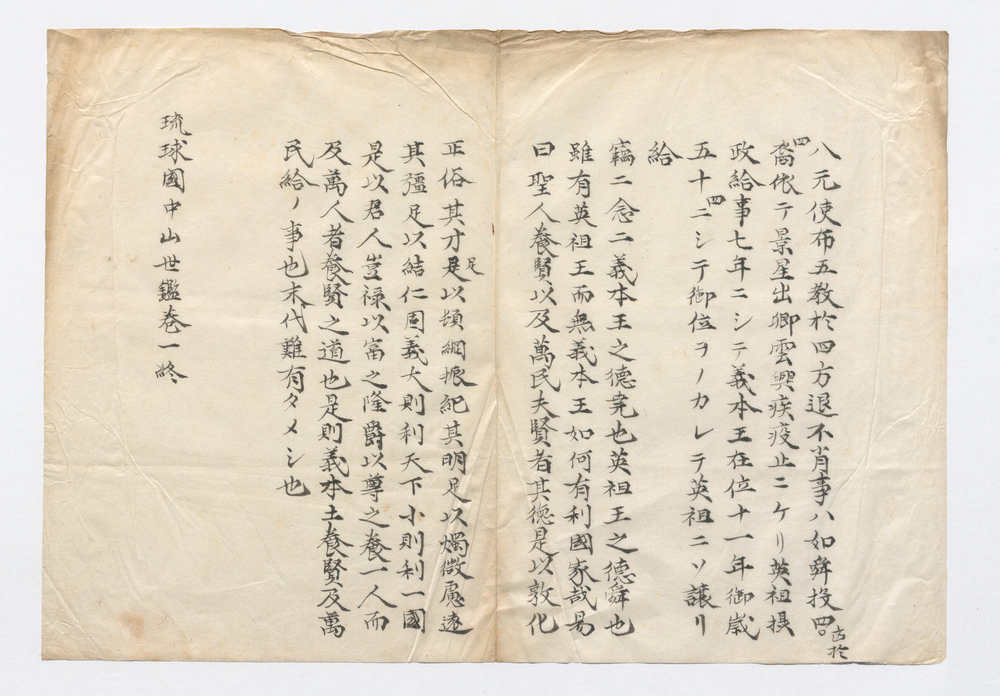 八元使布五教於四方退不肖事ハ如舜投四。古於
四裔依テ景星出卿雲興疾疫止ニケリ英祖摂
政給事七年ニシテ義本王在位十一年御歳
五十四ニシテ御位ヲノカレテ英祖ニソ譲リ
給
竊ニ念ニ義本王之德尭也英祖王之德舜也
雖有英祖王而無義本王如何有利國家哉易
曰聖人養賢以及萬民夫賢者其徳足以敦化
正俗其才足足以頓網振紀其明足以燭微慮遠
其彊足以結仁固義大則利天下小則利一國
是以君人豈禄以富之隆爵以尊之養一人而
及萬人者養賢之道也是則義本土養賢及萬
民給ノ事也末代難有タメシ也
琉球國中山世鑑巻一終